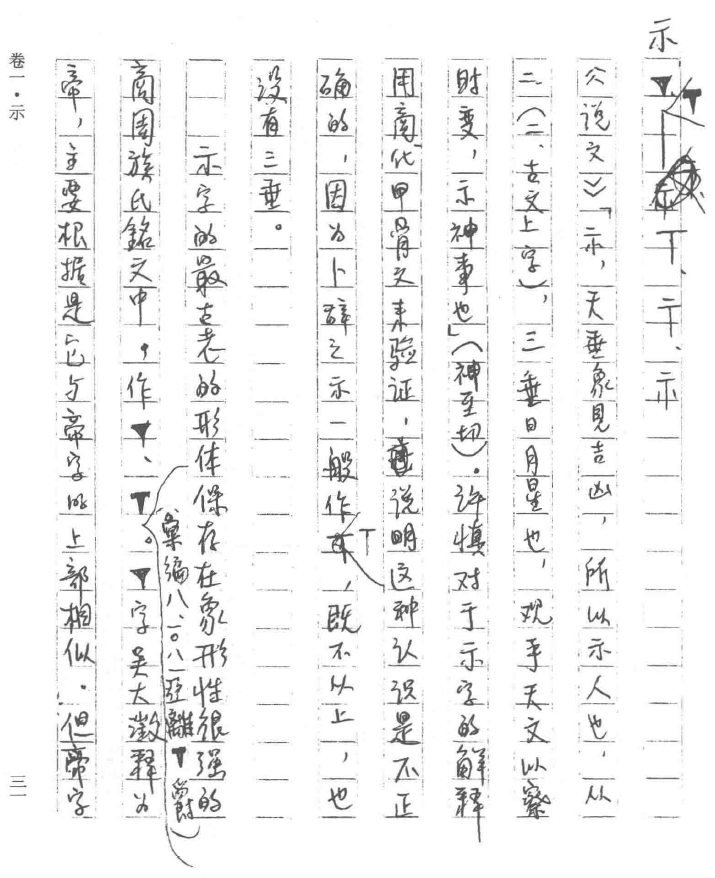 示
▼、丅、亍、示
《说文》「示，天垂象見吉凶，所以示人也，从
二（二、古文上字），三垂日月星也，观乎天文以察
时变，示神事也」（神至切）。许慎对于示字的解释
用商代甲骨文来验证，说明这种认识是不正
确的，因为卜辞之示一般作丅，既不从上，也
没有三垂。
示字的最古老的形体保存在象形性很强的
（《彙编八、一〇八一亞離▼爵）
商周族氏銘文中，作▼、▼。▼字吴大澂释为
帝，主要根据是它与帝字的上部相似．但帝字
卷一·示
三一